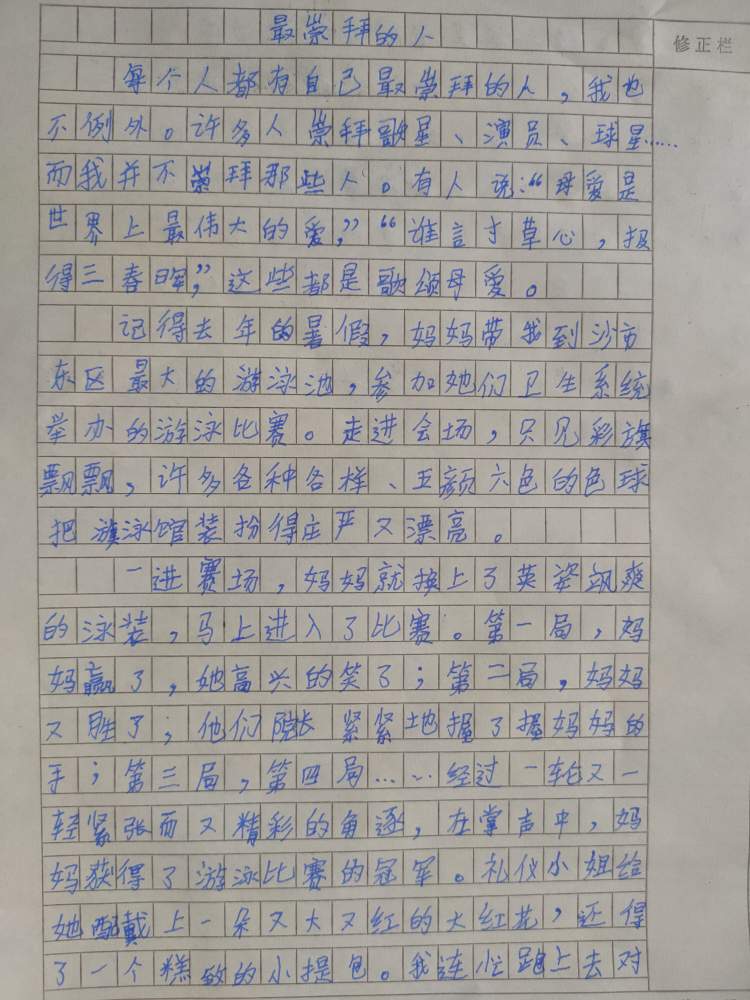 最崇拜的人
修正栏
每个人都有自己最崇拜的人，我也
不例外。许多人崇拜歌星、演员、球星……
而我并不崇拜那些人。有人说：“母爱是
世界上最伟大的爱，”“谁言寸草心，报
得三春晖，”这些都是歌颂母爱。
记得去年的暑假，妈妈带我到沙市
东区最大的游泳池，参加她们卫生系统
举办的游泳比赛。走进会场，只见彩旗
飘飘，许多各种各样、五颜六色的色球
把游泳馆装扮得庄严又漂亮。
一进赛场，妈妈就换上了英姿飒爽
的泳装，马上进入了比赛。第一局，妈
妈赢了，她高兴的笑了；第二局，妈妈
又胜了；他们院长紧紧地握了握妈妈的
手；第三局，第四局……经过一轮又一
轻紧张而又精彩的角逐，在掌声中，妈
妈获得了游泳比赛的冠军。礼仪小姐给
她配戴上一朵又大又红的大红花，还得
了一个糕致的小提包。我连忙跑上去对